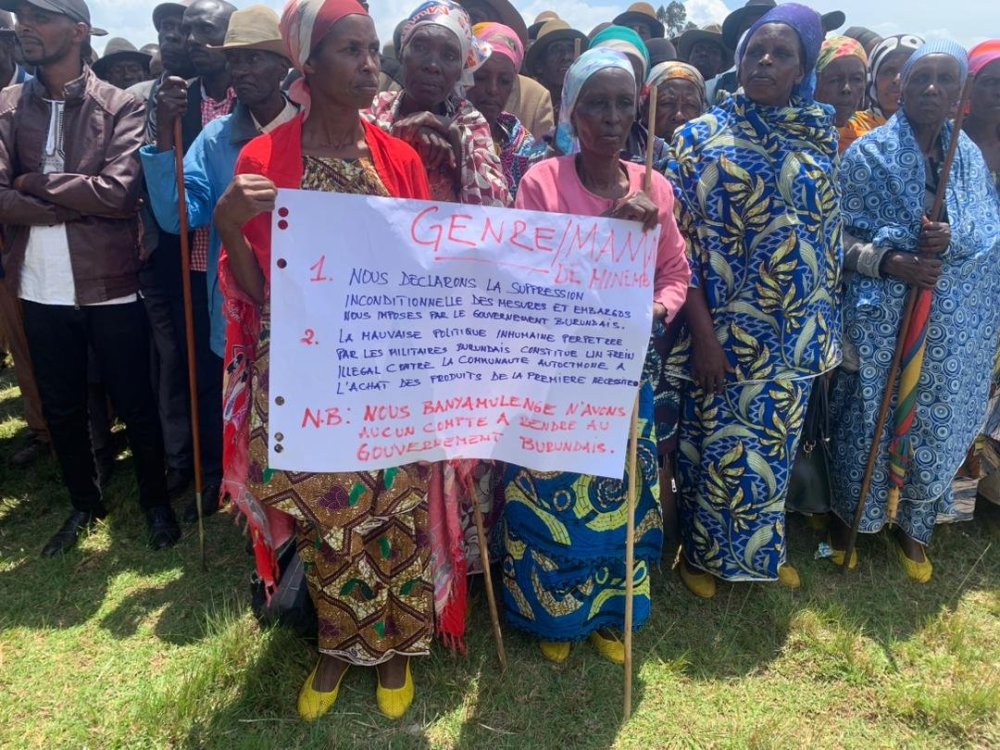 GENRE/MAMA
DE MINEMB
1. NOUS DECLARONS LA SUPPRESSION
INCONDITIONNELLE DES MESURES ET EMBARGOS
NOUS IMPOSES PAR LE GOUVERNEMENT BURUNDAIS.
2. LA MAUVAISE POLITIQUE INHUMAINE PERPETREE
PAR LES MILITAIRES BURUNDAIS CONSTITUE UN FREIN
ILLEGAL CONTRE LA COMMUNAUTE AUTOCTHONE A
L'ACHAT DES PRODUITS DE LA PREMIERE NECESSITE
N.B: NOUS BANYAMULENGE N'AVONS
AUCUN COMPTE A RENDRE AU
GOUVERNEMENT BURUNDAIS.